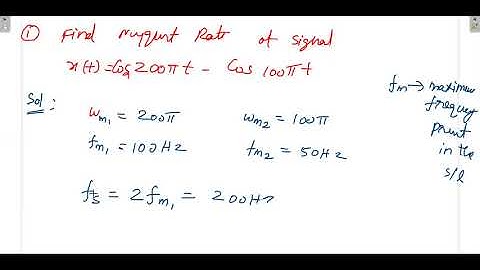 ① Find Nyquist Rate of signal
x(t)=Cos 200πt - Cos 100πt
Sol :
ωm1 = 200π ωm2 = 100π
fm1 = 100Hz fm2 = 50Hz
fs = 2fm1 = 200Hz
fm → maximum
frequency
present
in the
s/l